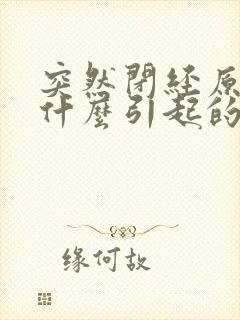 突然閉経原
什麼引起的
缘何故